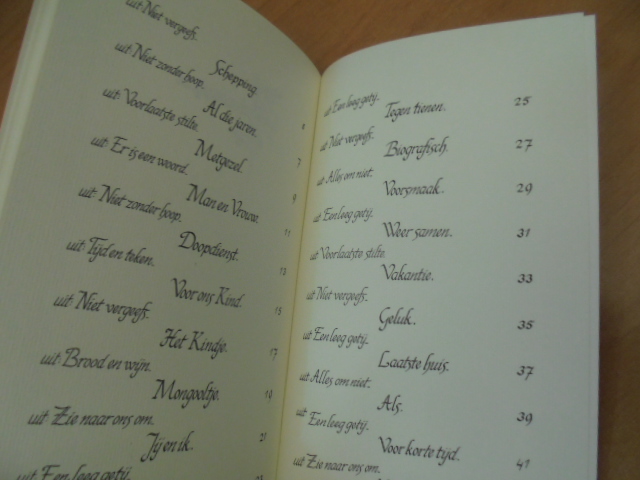 uit Niet vergeefs.
Schepping
uit Niet zonder hoop.
Al die jaren.
uit Voorlaatste stilte. 7
Metgezel.
uit Er is een woord. 9
Man en Vrouw.
uit Niet zonder hoop. 11
Doopdienst.
uit Tijd en teken. 13
Voor ons Kind.
uit Niet vergeefs. 15
Het Kindje.
uit Brood en wijn. 17
Mongooltje. 19
uit Zie naar ons om.
Jij en ik. 21
uit Een leeg getij.
uit Een leeg getij.
Tegen tienen. 25
uit Niet vergeefs.
Biografisch. 27
uit Alles om niet.
Voorsmaak. 29
uit Een leeg getij.
Weer samen. 31
uit Voorlaatste stilte.
Vakantie. 33
uit Niet vergeefs.
Geluk. 35
uit Een leeg getij.
Laatste huis. 37
uit Alles om niet.
Als. 39
uit Een leeg getij.
Voor korte tijd. 41
uit Zie naar ons om.